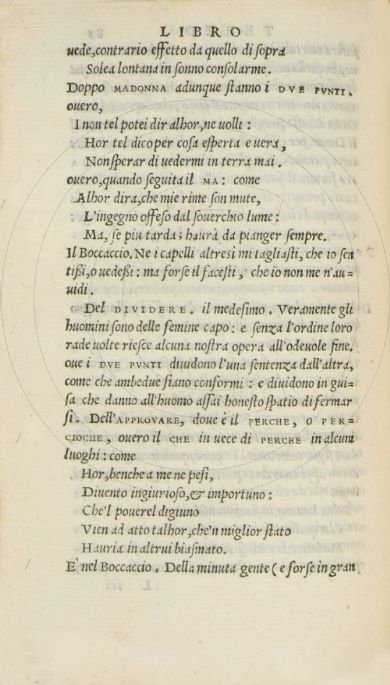 LIBRO
uede, contrario effetto da quello di sopra
Solea lontana in sonno consolarme.
Doppo MADONNA adunque stanno i DVE PVNTI.
ouero,
I non tel potei dir alhor, ne uolli:
Hor tel dico per cosa esperta e uera,
Non sperar di uedermi in terra mai.
ouero, quando seguita il MA: come
Alhor dira, che mie rime son mute,
L'ingegno offeso dal souerchio lume:
Ma, se piu tarda; haurà da pianger sempre.
Il Boccaccio. Ne i capelli altresi mi tagliasti, che io sen
tißi, o uedeßi: ma forse il facesti, che io non me n'au-
uidi.
Del DIVIDERE. il medesimo. Veramente gli
huomini sono delle femine capo: e senza l'ordine loro
rade uolte riesce alcuna nostra opera all'odeuole fine.
oue i DVE PVNTI diuidono l'una sentenza dall'altra,
come che ambedue siano conformi: e diuidono in gui-
sa che danno all'huomo assai honesto spatio di fermar
si. Dell'APPROVARE, doue è il PERCHE, O PER=
CIOCHE, ouero il CHE in uece di PERCHE in alcuni
luoghi: come
Hor, benche a me ne pesi,
Diuento ingiurioso, & importuno:
Che'l pouerel digiuno
Vien ad atto talhor, che'n miglior stato
Hauria in altrui biasmato.
E' nel Boccaccio. Della minuta gente (e forse in gran